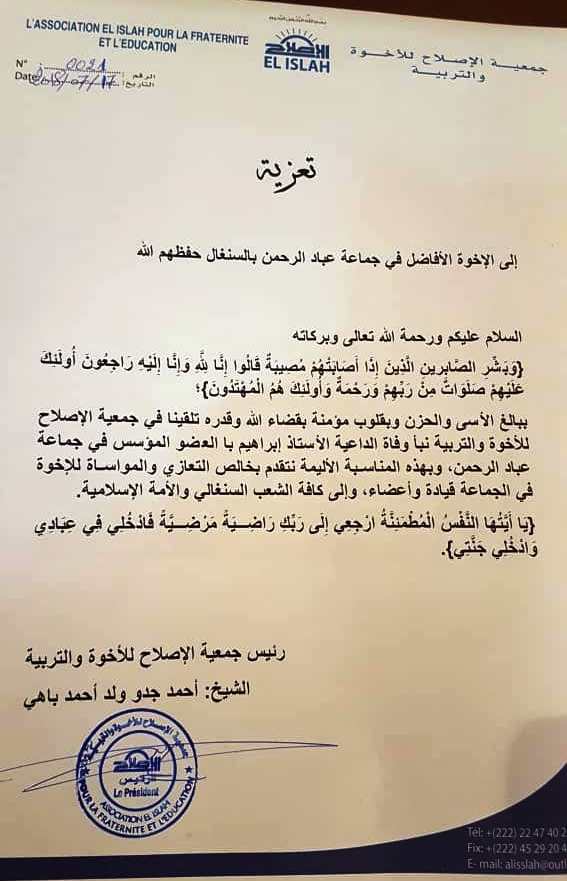 بسم الله الرحمن الرحيم
L'ASSOCIATION EL ISLAH POUR LA FRATERNITE
ET L'EDUCATION
الإصلاح
EL ISLAH
جمعية الإصلاح للأخوة
والتربية
N° 0021 الرقم:
Date 2018/07/17 التاريخ:
تعزية
إلى الإخوة الأفاضل في جماعة عباد الرحمن بالسنغال حفظهم الله
السلام عليكم ورحمة الله تعالى وبركاته
{وَبَشِّرِ الصَّابِرِينَ الَّذِينَ إِذَا أَصَابَتْهُمْ مُصِيبَةٌ قَالُوا إِنَّا لِلَّهِ وَإِنَّا إِلَيْهِ رَاجِعُونَ أُولَئِكَ
عَلَيْهِمْ صَلَوَاتٌ مِنْ رَبِّهِمْ وَرَحْمَةٌ وَأُولَئِكَ هُمُ الْمُهْتَدُونَ}؛
ببالغ الأسى والحزن وبقلوب مؤمنة بقضاء الله وقدره تلقينا في جمعية الإصلاح
للأخوة والتربية نبأ وفاة الداعية الأستاذ إبراهيم با العضو المؤسس في جماعة
عباد الرحمن، وبهذه المناسبة الأليمة نتقدم بخالص التعازي والمواساة للإخوة
في الجماعة قيادة وأعضاء، وإلى كافة الشعب السنغالي والأمة الإسلامية.
{يَا أَيَّتُهَا النَّفْسُ الْمُطْمَئِنَّةُ ارْجِعِي إِلَى رَبِّكِ رَاضِيَةً مَرْضِيَّةً فَادْخُلِي فِي عِبَادِي
وَادْخُلِي جَنَّتِي}.
رئيس جمعية الإصلاح للأخوة والتربية
الشيخ: أحمد جدو ولد أحمد باهي
جمعية الإصلاح للأخوة والتربية
الإصلاح
الرئيس
Le Président
ASSOCIATION EL ISLAH
POUR LA FRATERNITE ET L'EDUCATION
Tél: +(222) 22 47 40 2
Fix: +(222) 45 29 20 4
E- mail: alisslah@outl